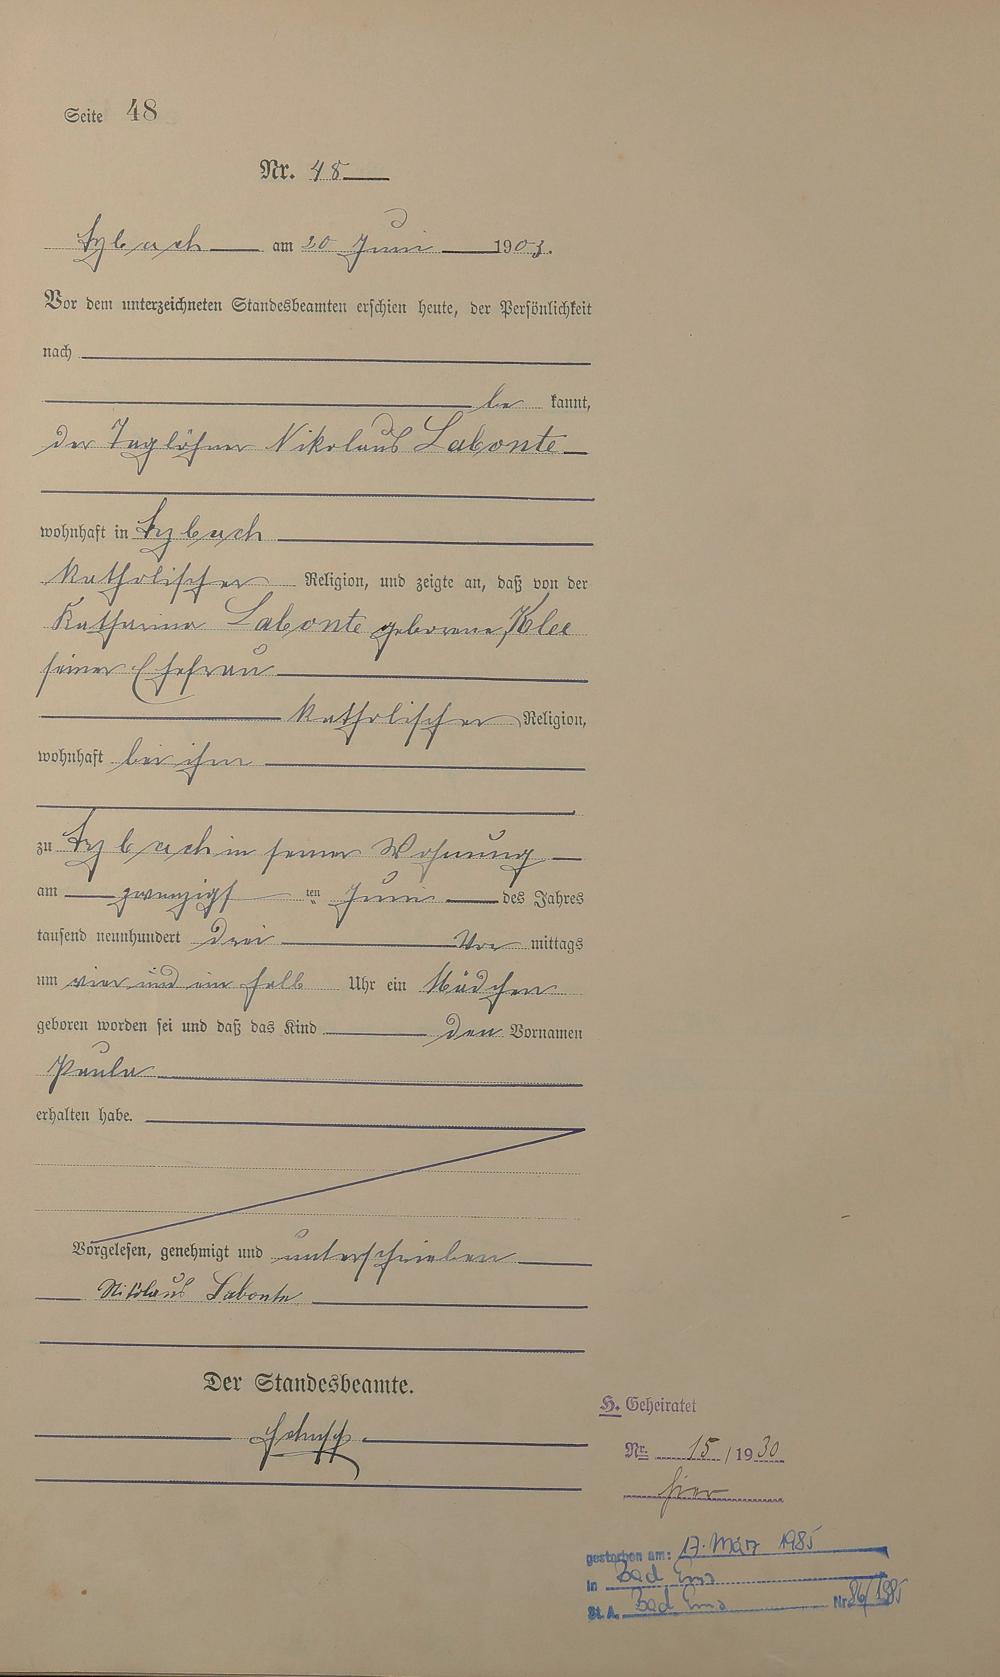 Seite 48
Nr. 48
Ezbach am 20 Juni 1903.
Vor dem unterzeichneten Standesbeamten erschien heute, der Persönlichkeit
nach
be kannt,
der Taglöhner Nikolaus Labonte
wohnhaft in
katholischer Religion, und zeigte an, daß von der
Katharina Labonte geborene Klee
seiner Ehefrau
katholischer Religion,
wohnhaft bei ihm
zu in seiner Wohnung
am zwanzigsten Juni des Jahres
tausend neunhundert drei Vor mittags
um vier und ein halb Uhr ein Mädchen
geboren worden sei und daß das Kind den Vornamen
Paula
erhalten habe.
Vorgelesen, genehmigt und unterschrieben
Nikolaus Labonte
Der Standesbeamte.
H. Geheiratet
Nr. 15 / 1930
hier
gestorben am: 17. März 1985
in Bad Ems
St. A. Bad Ems Nr 86/1985